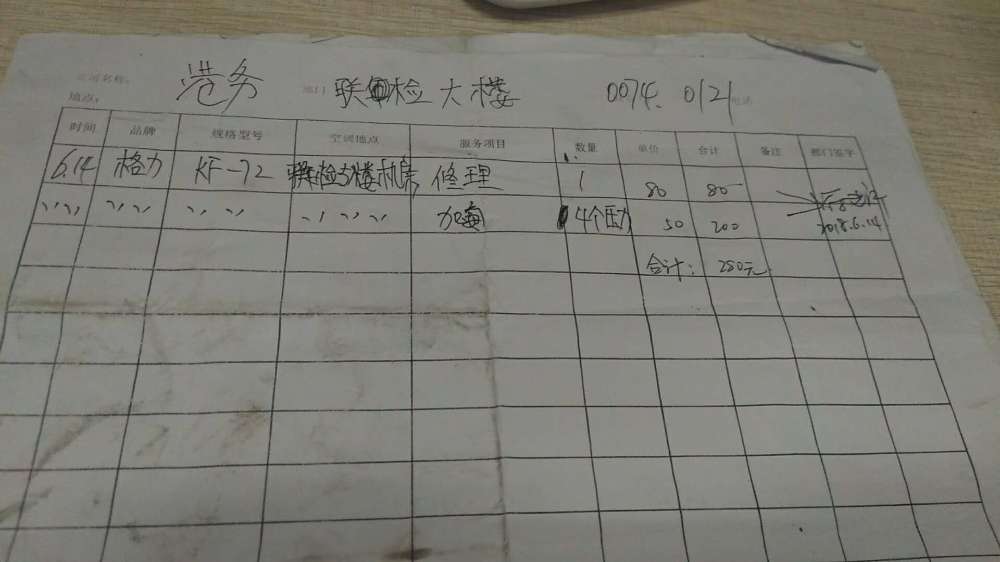 公司名称: 港务 部门 联检大楼 0074. 0121 电话
地点:
时间 品牌 规格型号 空调地点 服务项目 数量 单价 合计 备注 部门签字
6.14 格力 KF-72 联检大楼机房 修理 1 80 80
〃 〃 〃 〃 加氟 4个压力 50 200 2018.6.14
合计: 280元